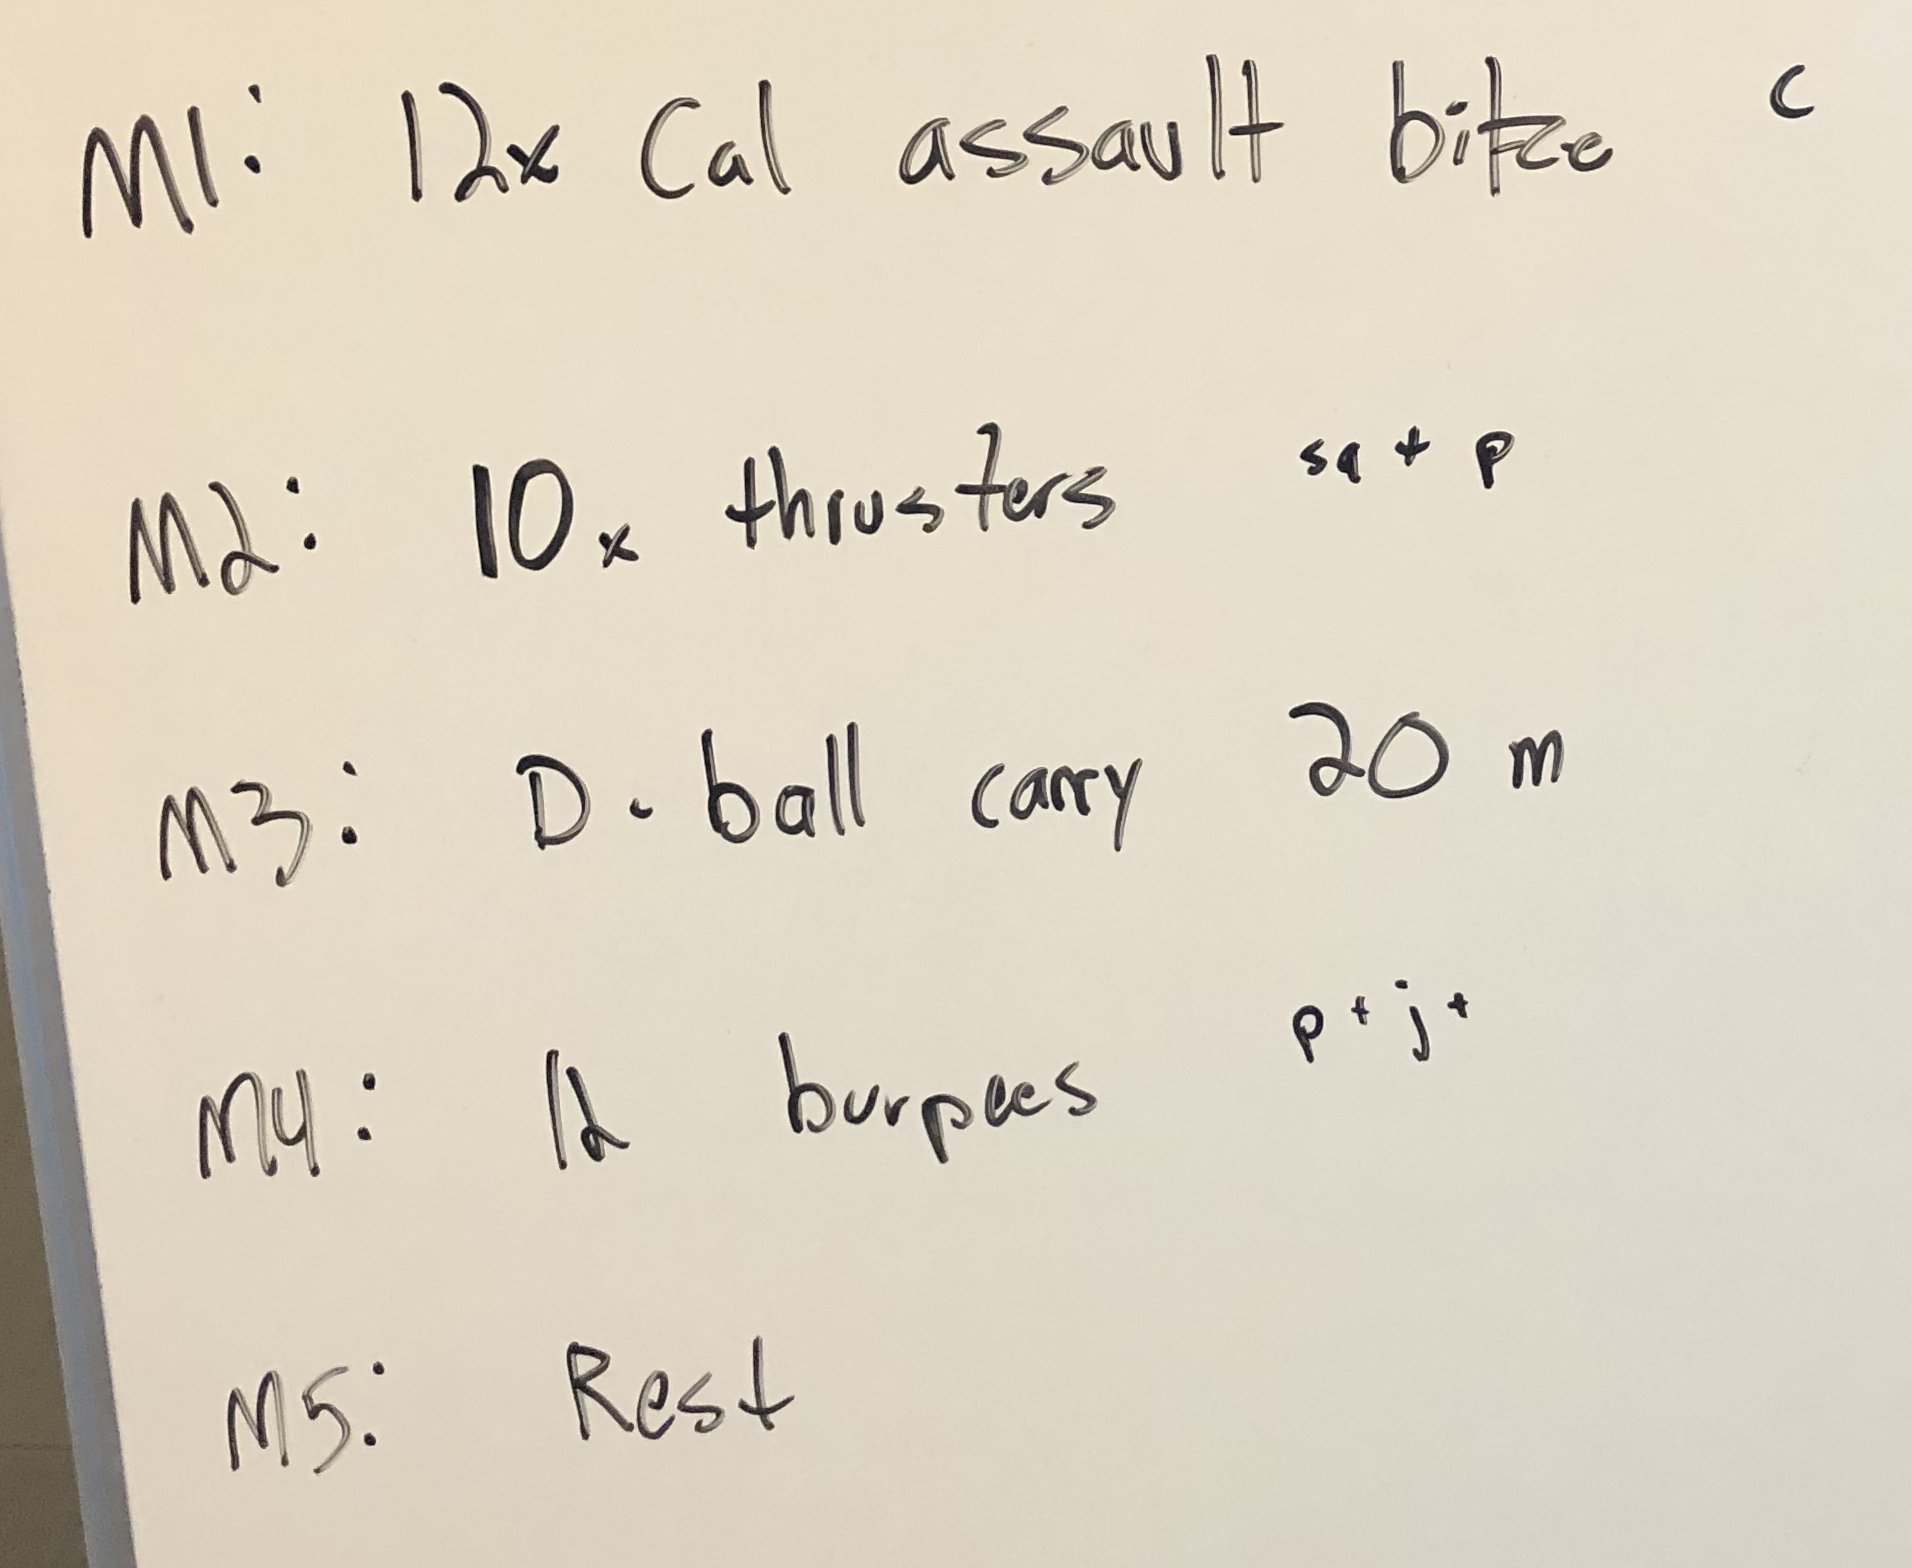 M1: 12x Cal assault bike c
M2: 10x thrusters sq + p
M3: D-ball carry 20 m
M4: 12 burpees p + j +
M5: Rest